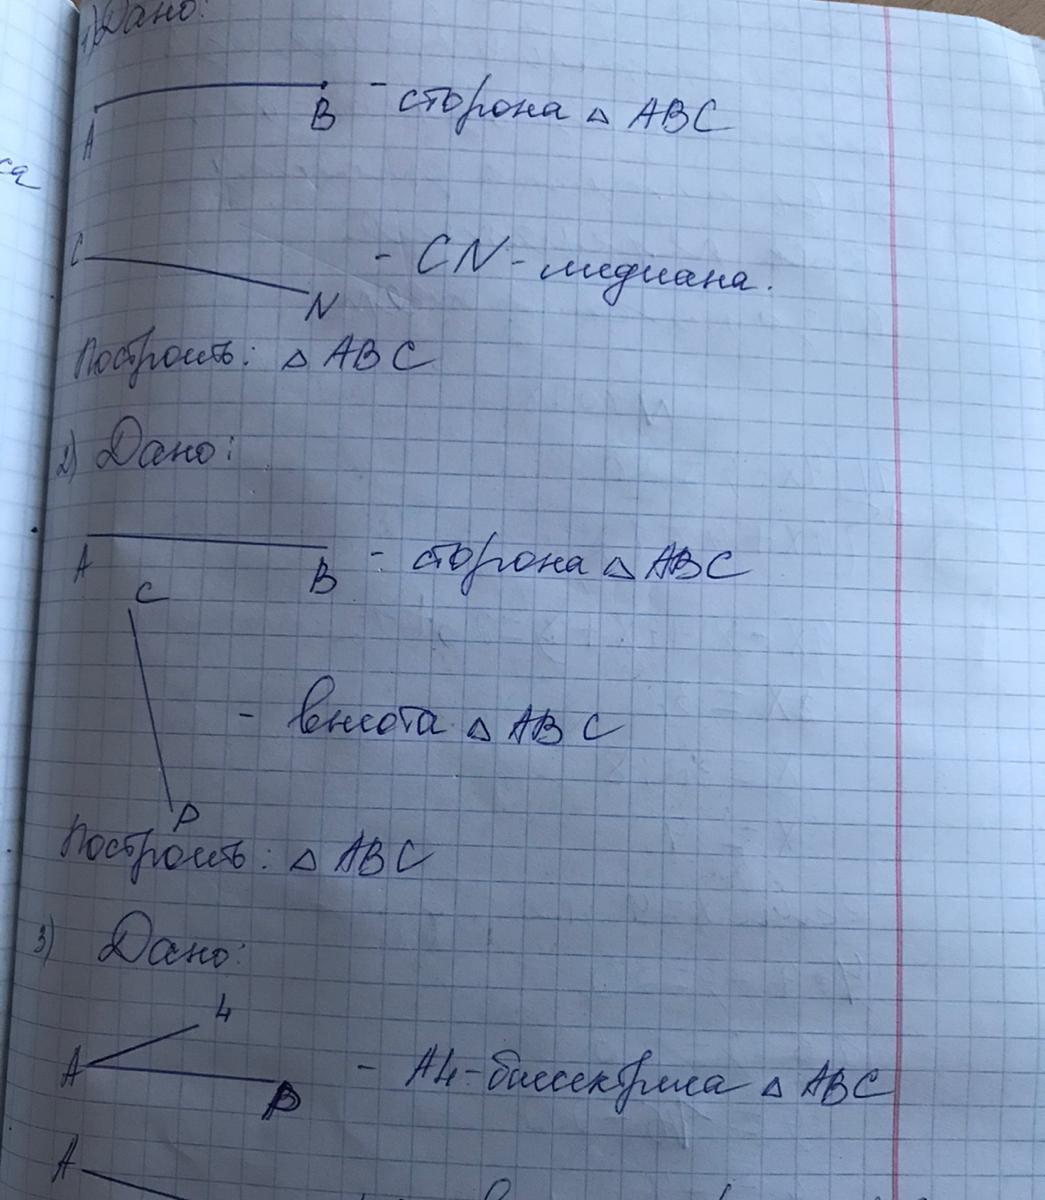 1) Дано:
A B - сторона △ ABC
C N - CN - медиана.
Построить: △ ABC
2) Дано:
A B - сторона △ ABC
C
- высота △ ABC
P
Построить: △ ABC
3) Дано:
4
A B - A4 - биссектриса △ ABC
A